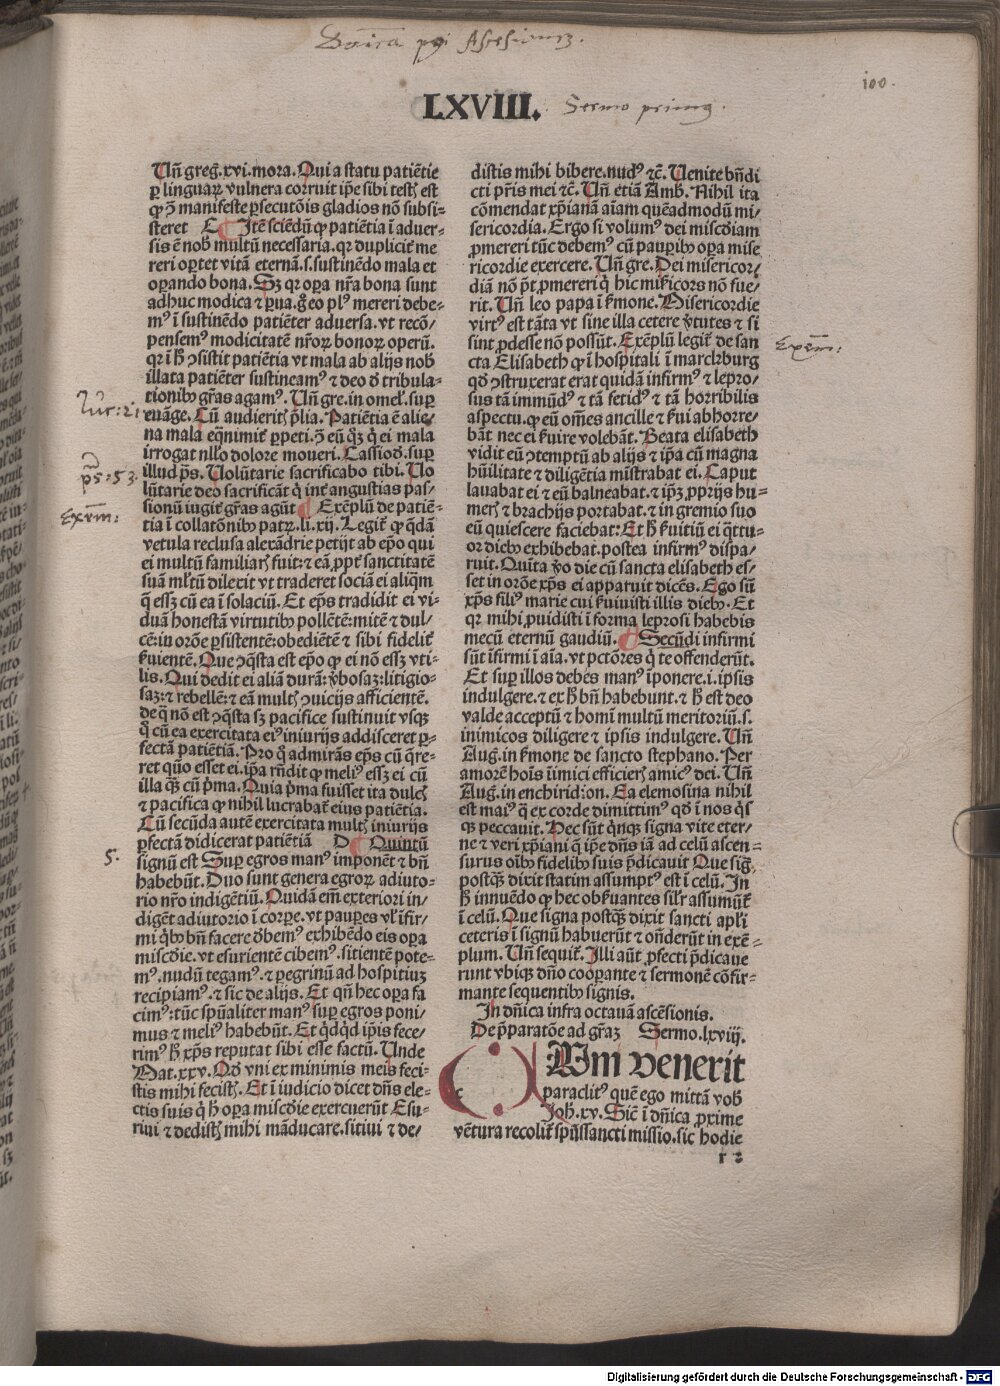 LXVIII. Sermo primus.
100.
Uñ greg̃. xvi. mora. Qui a statu patiẽtie
ꝑ linguaꝝ vulnera corruit ip̃e sibi testis est
ꝙ ꝯ̃ manifeste ꝑsecutõis gladios nõ subsi-
steret C Itẽ sciẽdũ ꝙ patiẽtia ĩ aduer-
sis ẽ nob̃ multũ necessaria. qꝛ duplicit̃ me
reri oꝑtet vitã eternã. s. sustinẽdo mala et
oꝑando bona. Sꝫ qꝛ oꝑa nr̃a bona sunt
adhuc modica ⁊ ꝑua. g̊ eo plꝰ mereri debe-
mꝰ ĩ sustinẽdo patiẽter aduersa. vt recõ/
pensemꝰ modicitatẽ nr̃oꝝ bonoꝝ operũ.
qꝛ ĩ h̃ ꝯsistit patiẽtia vt mala ab alijs nob̃
illata patiẽter sustineamꝰ ⁊ deo ď tribula-
tionibꝰ gr̃as agamꝰ. Uñ gre. in omel̃. suꝑ
euãge. Cũ audierit̃ p̃lia. Patiẽtia ẽ alie-
na mala eq̃nimit̃ ꝑpeti. ꝯ̃ eũ qꝫ q̇ ei mala
irrogat nllo dolore moueri. Cassiod̃. suꝑ
illud p̃s. Uolũtarie sacrificabo tibi. Uo
lũtarie deo sacrificãt q̇ int̃ angustias pas/
sionũ iugit̃ gr̃as agũt Exẽplũ de patiẽ-
tia ĩ collatõnibꝰ patꝝ. li. xij. Legit̃ ꝙ q̃dã
vetula reclusa alexãdrie petijt ab ep̃o qui
ei multũ familiaris fuit: ⁊ eã ꝓpt̃ sanctitatẽ
suã ml̃tũ dilexit vt traderet sociã ei aliq̃m
q̃ essꝫ cũ ea ĩ solaciũ. Et ep̃s tradidit ei vi-
duã honestã virtutibꝰ pollẽtẽ: mitẽ ⁊ dul/
cẽ: in orõe ꝑsistentẽ: obediẽtẽ ⁊ sibi fidelit̃
ẜuientẽ. Que ꝯq̃sta est ep̃o ꝙ ei nõ essꝫ vti-
lis. Qui dedit ei aliã durã: v̓bosaꝫ: litigio-
saꝫ: ⁊ rebellẽ: ⁊ eã multis ꝯuicijs afficientẽ.
de q̃ nõ est ꝯq̃sta sꝫ pacifice sustinuit vsqꝫ
q̇ cũ ea exercitata eiꝰ iniurijs addisceret ꝑ-
fectã patiẽtiã. Pro q̊ admirãs ep̃s cũ q̃re-
ret quõ esset ei. ip̃a rñdit ꝙ meliꝰ essꝫ ei cũ
illa qᷓꝫ cũ p̃ma. Quia p̃ma fuisset ita dulcis
⁊ pacifica ꝙ nihil lucrabat̃ eius patiẽtia.
Cũ secũda autẽ exercitata multis iniurijs
ꝑfectã didicerat patiẽtiã D Quintũ
signũ est Suꝑ egros manꝰ imponẽt ⁊ bñ
habebũt. Duo sunt genera egroꝝ adiuto-
rio nr̃o indigẽtiũ. Quidã em̃ exteriori in/
digẽt adiutorio ĩ corꝑe. vt pauꝑes vl̓ ĩfir/
mi q̇bꝰ bñ facere ďbemꝰ exhibẽdo eis oꝑa
misc̃die. vt esurientẽ cibemꝰ. sitientẽ pote-
mꝰ. nudũ tegamꝰ. ⁊ ꝑegrinũ ad hospitiuꝫ
recipiamꝰ. ⁊ sic de alijs. Et qñ hec oꝑa fa
cimꝰ: tũc spũaliter manꝰ suꝑ egros poni/
mus ⁊ meliꝰ habebũt. Et q̇dq̇d ip̃is fece/
rimꝰ h̃ xp̃s reputat sibi esse factũ. Unde
Mat. xxv. Qď vni ex minimis meis feci-
stis mihi fecistis. Et ĩ iudicio dicet dñs ele-
ctis suis q̇ h̃ oꝑa misc̃die exercuerũt Esu-
riui ⁊ dedistis mihi mãducare. sitiui ⁊ de/
Exem:
5.
distis mihi bibere. nudꝰ ⁊c̃. Uenite bñdi
cti pr̃is mei ⁊c̃. Uñ etiã Amb̃. Nihil ita
cõmendat xp̃ianã aĩam quẽadmodũ mi/
sericordia. Ergo si volumꝰ dei misc̃diam
ꝓmereri tũc debemꝰ cũ pauꝑibꝰ oꝑa mise
ricordie exercere. Uñ gre. Dei misericor/
diã nõ pt̃ ꝓmereri q̇ hic mĩcors nõ fue/
rit. Uñ leo papa ĩ ẜmone. Misericordie
virtꝰ est tãta vt sine illa cetere v̓tutes ⁊ si
sint ꝓdesse nõ possũt. Exẽplũ legit̃ de san
cta Elisabeth ꝙ ĩ hospitali ĩ marclrburg
qď ꝯstruxerat erat quidã infirmꝰ ⁊ lepro/
sus tã immũdꝰ ⁊ tã fetidꝰ ⁊ tã horribilis
aspectu. ꝙ eũ om̃es ancille ⁊ ẜui abhorre/
bãt nec ei ẜuire volebãt. Beata elisabeth
vidit eũ ꝯtemptũ ab alijs ⁊ ip̃a cũ magna
hũilitate ⁊ diligẽtia mĩstrabat ei. Caput
lauabat ei ⁊ eũ balneabat. ⁊ ip̃ꝫ ꝓprijs hu-
meris ⁊ brachijs portabat. ⁊ in gremio suo
eũ quiescere faciebat: Et h̃ ẜuitiũ ei q̃ttu-
or diebꝰ exhibebat. postea infirmꝰ dispa/
ruit. Quita v̊o die cũ sancta elisabeth es/
set in orõe xp̃s ei apparuit dicẽs. Ego sũ
xp̃s filiꝰ marie cui ẜuiuisti illis diebꝰ. Et
qꝛ mihi ꝓuidisti ĩ forma leprosi habebis
mecũ eternũ gaudiũ. Secũdi infirmi
sũt ĩfirmi ĩ aĩa. vt pctõres q̇ te offenderũt.
Et suꝑ illos debes manꝰ ĩponere. i. ipsis
indulgere. ⁊ ex h̃ bñ habebunt. ⁊ h̃ est deo
valde acceptũ ⁊ homĩ multũ meritoriũ. s.
inimicos diligere ⁊ ipsis indulgere. Uñ
Aug̃. in ẜmone de sancto stephano. Per
amorẽ hoĩs ĩimici efficieris amicꝰ dei. Uñ
Aug̃. in enchirid:on. Ea elemosina nihil
est maiꝰ q̃ ex corde dimittimꝰ qď ĩ nos q̇s
qꝫ peccauit. Hec sũt q̇nqꝫ signa vite eter/
ne ⁊ veri xp̃iani q̃ ip̃e dñs iã ad celũ ascen-
surus oĩbꝰ fidelibꝰ suis p̃dicauit Que sig̃.
postqᷓꝫ dixit statim assumptꝰ est ĩ celũ. In
h̃ innuẽdo ꝙ hec obẜuantes sil̓r assumũt̃
ĩ celũ. Que signa postqᷓꝫ dixit sancti apl̓i
ceteris ĩ signũ habuerũt ⁊ oñderũt in exẽ-
plum. Uñ sequit̃. Illi aũt ꝓfecti p̃dicaue
runt vbiqꝫ dño cooꝑante ⁊ sermonẽ cõfir-
mante sequentibꝰ signis.
In dñica infra octauã ascẽsionis.
De p̃paratõe ad gr̃aꝫ Sermo. lxviij.
Um venerit
paraclitꝰ quẽ ego mittã vob̃
Joh̃. xv. Sic̃ ĩ dñica ꝓxime
vẽtura recolit̃ spũssancti missio. sic hodie
r 2
Exem:
Digitalisierung gefördert durch die Deutsche Forschungsgemeinschaft - DFG